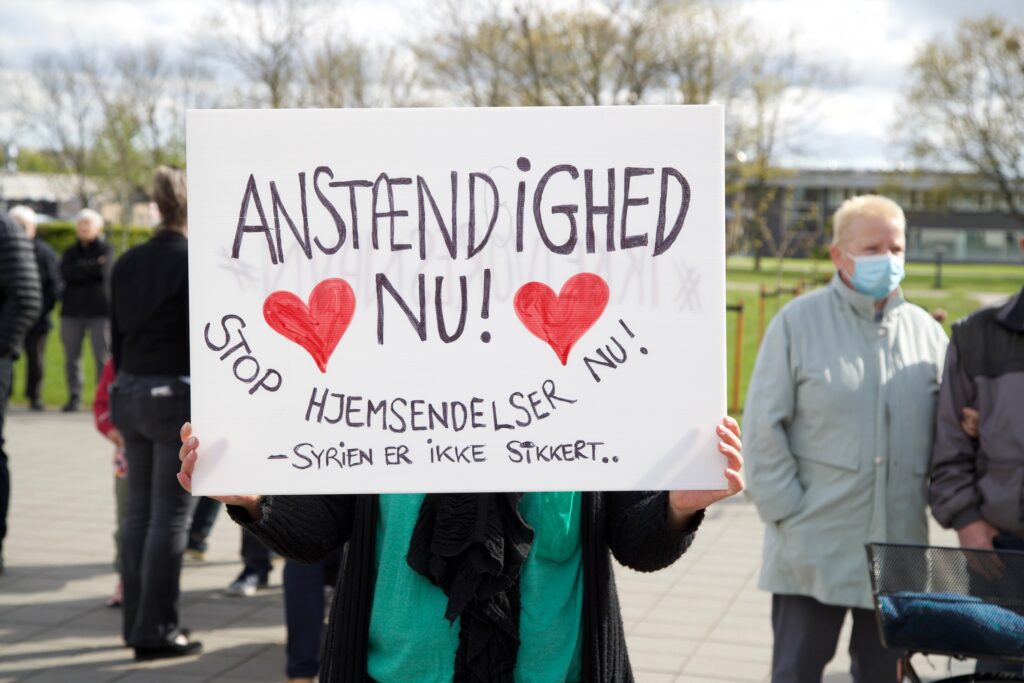 ANSTÆNDIGHED
NU!
STOP HJEMSENDELSER NU!
- SYRIEN ER IKKE SIKKERT..